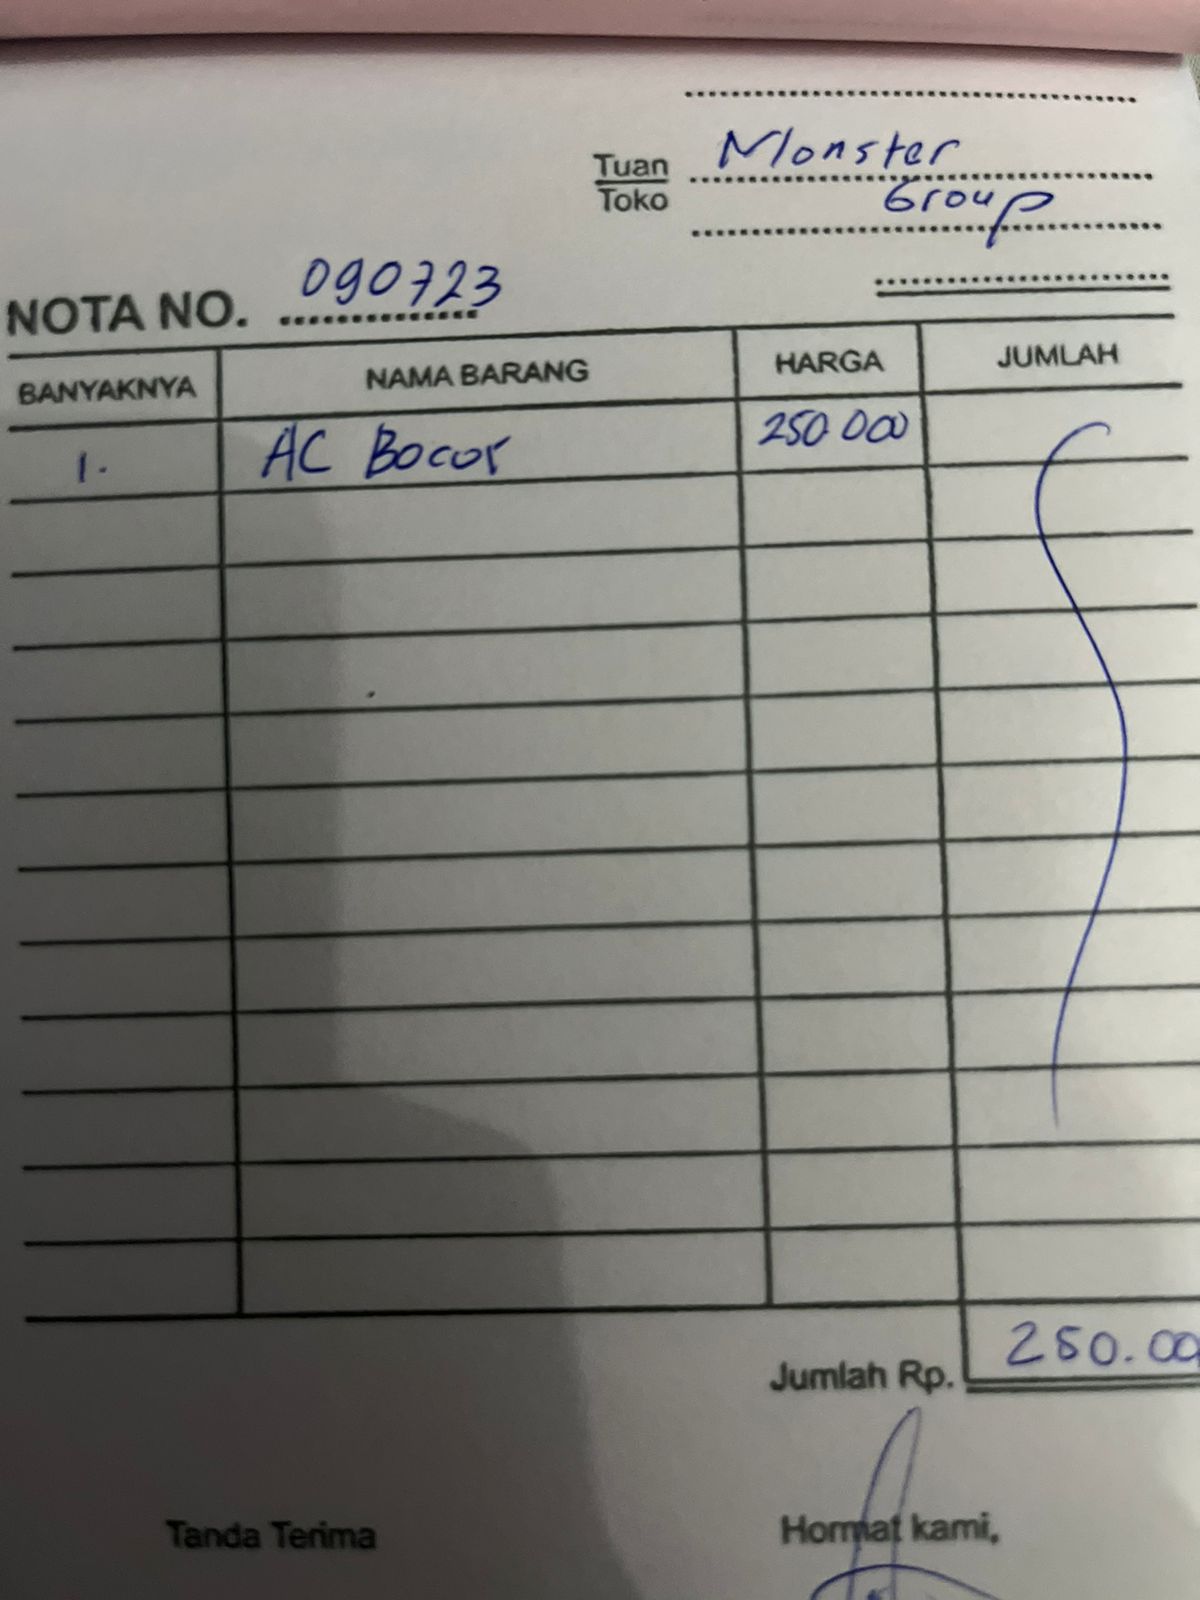 Monster
Tuan
Toko
Group
NOTA NO. 090723
BANYAKNYA NAMA BARANG HARGA JUMLAH
1. AC Bocor 250.000
Jumlah Rp. 250.00
Tanda Terima Hormat kami,